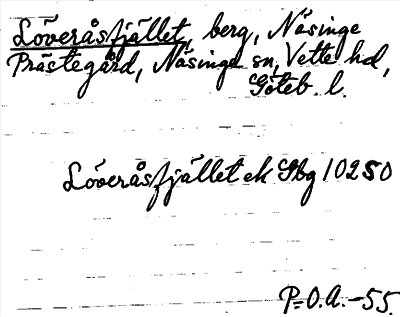 Löveråsfjället, berg, Näsinge
Prästegård, Näsinge sn, Vette hd,
Göteb. l.
Löveråsfjället ek Gbg 10250
P-O.A.-55.